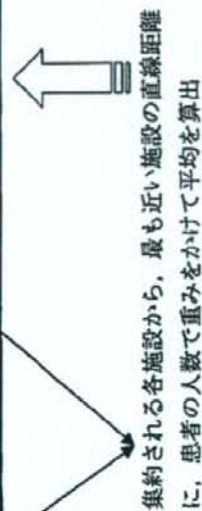 集約される各施設から，最も近い施設の直線距離
に，患者の人数で重みをかけて平均を算出